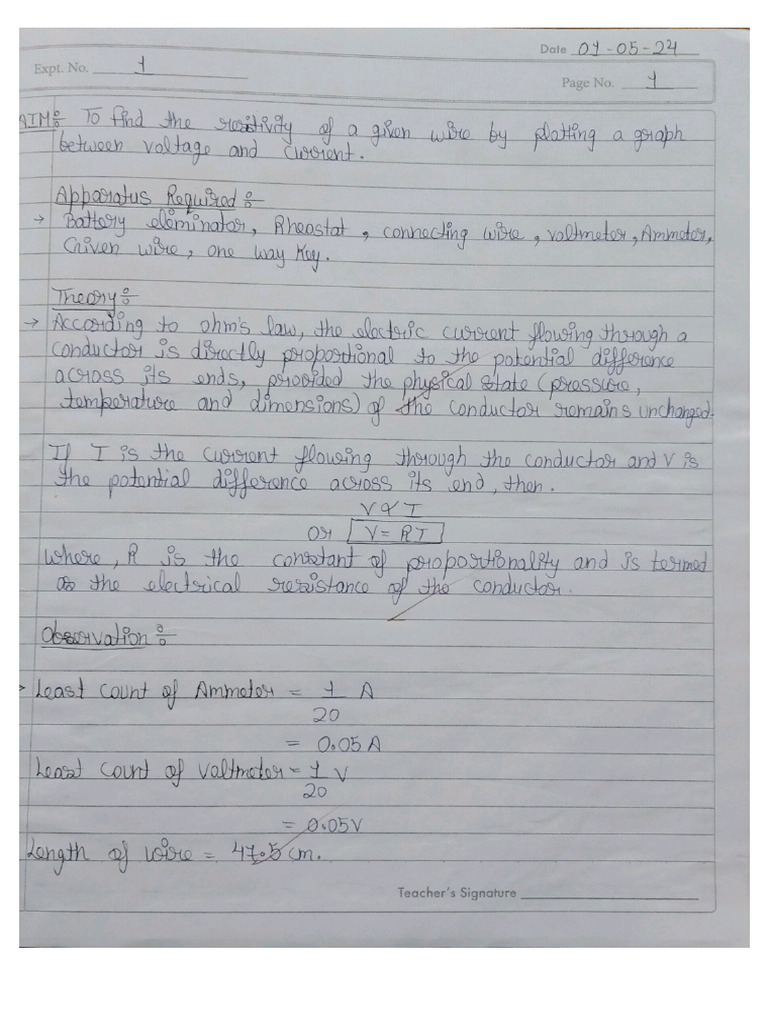 Date 01-05-24
Expt. No. 1
Page No. 1
AIM:- To find the resistivity of a given wire by plotting a graph
between voltage and current.
Apparatus Required:-
→ Battery eleminator, Rheostat, connecting wire, voltmeter, Ammeter,
Given wire, one way key.
Theory:-
→ According to ohm's law, the electric current flowing through a
conductor is directly proportional to the potential difference
across its ends, provided the physical state (pressure,
temperature and dimensions) of the conductor remains unchanged.
If I is the current flowing through the conductor and V is
the potential difference across its end, then.
V ∝ I
or V = RI
where, R is the constant of proportionality and is termed
as the electrical resistance of the conductor.
Observation:-
→ Least count of Ammeter = 1/20 A
= 0.05 A
Least count of voltmeter = 1/20 V
= 0.05V
Length of wire = 47.5 cm.
Teacher's Signature